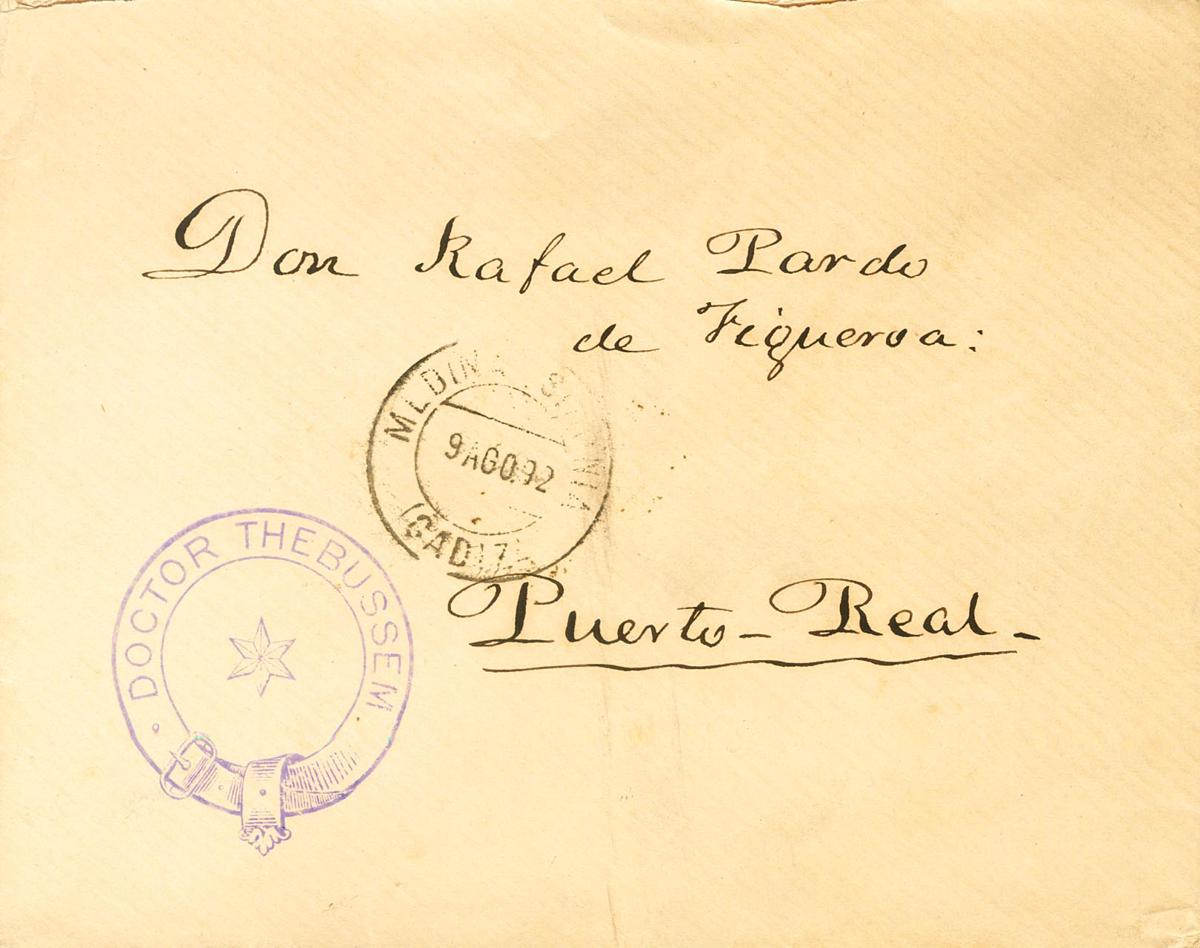 Don Rafael Pardo
de Figueroa:
MEDINA SIDONIA
9 AGO.92
(CADIZ)
DOCTOR THEBUSSEM
Puerto-Real-